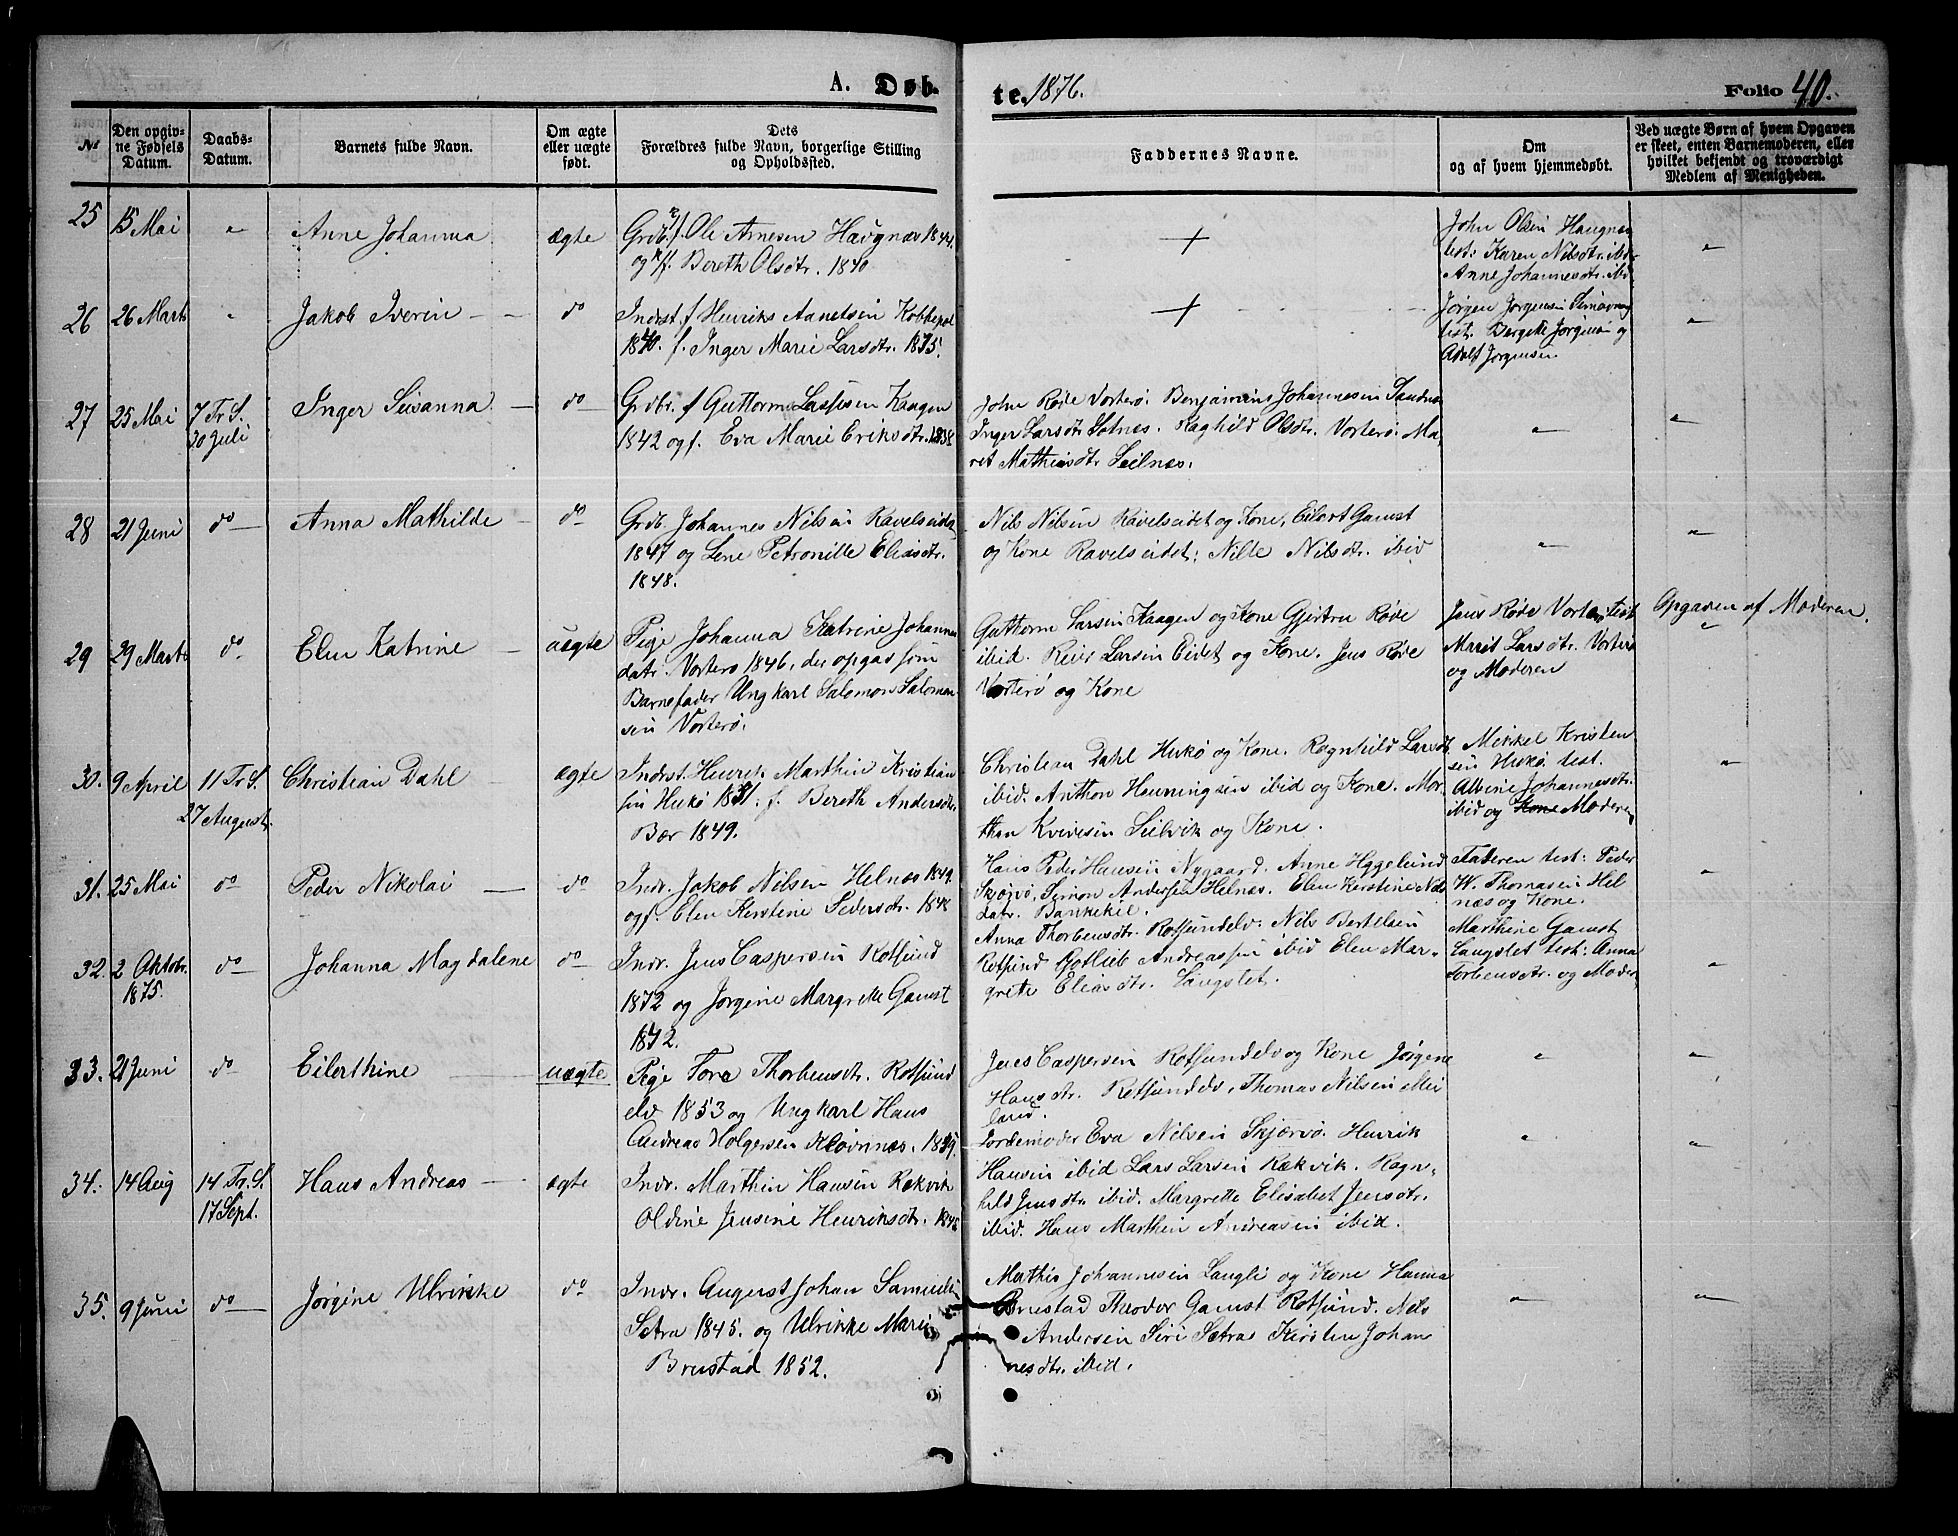 A. Døb-
te. 1876.
Folio 40.
№
Den opgiv-
ne Fødsels
Datum.
Daabs-
Datum.
Barnets fulde Navn.
Om ægte
eller uægte
født.
Dets
Forældres fulde Navn, borgerlige Stilling
og Opholdssted.
Faddernes Navne.
Om
og af hvem hjemmedøbt.
Ved uægte Børn af hvem Opgaven
er skeet, enten Barnemoderen, eller
hvilket bekjendt og troværdigt
Medlem af Menigheden.
25
15 Mai
"
Anne Johanna
ægte
Grdb. f. Ole Arnesen Haugnæs 1844.
og f. Bereth Olsdtr. 1840
+
John Olsen Haugnæs
test: Karen Nilsdtr. ibid
Anne Johannesdtr. ibid
"
26
26 Marts
"
Jakob Iverin
do
Indst. f Henriks
1840. f. Inger Marie Larsdtr. 1835.
+
Jørgen Jørgensen
test. Bergitte Jørgensen og
Adolf Jørgensen
"
27
25 Mai
7 Tr. S.
30 Juli
Inger Susanna
do
Grdbr. f Guttorm Larssen Kaagen
1842 og f. Eva Marie Eriksdtr. 1838
John Røde Vorterø. Benjamins Johannesen Sandnes
Inger Larsdtr Hotnes. Raghild Olsdtr. Vorterø. Ma-
ret Mathisdtr Seilnæs.
"
"
28
21 Juni
do
Anna Mathilde
do
Grdb. Johannes Nilsen Ravelseidet
1847 og Lene Petronille Eliasdtr.
1848.
Nils Nilsen Ravelseidet og Kone, Eilert Gamst
og Kone Ravelseidet: Nille Nilsdtr. ibid
"
"
29
29 Marts
do
Elen Katrine
uægte
Pige Johanna Katrine Johannes
datr. Vorterø 1846, der opgav som
Barnefader Ungkarl Salomon Salomon-
sen Vorterø.
Guttorm Larsen Kaagen og Kone Gjertru Røde
ibid. Reier Larsen Eidet og Kone. Jens Røde
Vorterø og Kone
Jens Røde Vorterø test
Marit Larsdtr. Vorterø
og Moderen
Opgaven af Moderen.
"
30.
9 April
11 Tr. S.
27 August.
Christian Dahl
ægte
Indst. Henrik Marthin Kristian
sen Hukø 1851. f. Bereth Andersdtr
Bær 1849.
Christian Dahl Hukø og Kone. Ragnhild Larsdt
ibid. Anthon Henningsen ibid og Kone. Mor-
than Seilvik og Kone.
Mikkel Kristen
sen Hukø. test.
Albine Johannesdtr.
ibid og Kone Moderen
"
31.
25 Mai
do
Peder Nikolai
do
Indr. Jakob Nilsen Helnæs 1849.
og f. Elen Kerstine Pedersdtr. 1848
Hans Peder Hansen Nygaard. Anne Hygelund
Skjørvø, Simon Andersen Helnæs. Elen Kerstine Nils
datr. Bankekiel.
Faderen test: Peder
W. Thomasen Hel
næs og Kone.
"
32.
2 Oktobr.
1875.
do
Johanna Magdalene
do
Indr. Jens Caspersen Rotsund
1872 og Jørgine Margrette Gamst
1842.
Anna Thorbensdtr. Rotsundelv. Nils Bertelsen
Rotsund Gotlieb Andreassen ibid Elen Mar-
grette Eliasdtr. Langslet.
Marthine Gamst
Langslet test: Anna
Torbensdtr. og Moder
"
33.
21 Juni
do
Eilerthine
uægte
Pige Tora Thorbensdtr. Rotsund
elv 1853 og Ungkarl Hans
Andreas Holgersen Kløvnæs. 1859.
Jens Caspersen Rotsundelv og Kone Jørgene
Hansdtr. Rotsundelv, Thomas Nilsen Mei
land.
"
"
34.
14 Aug
14 Tr. S.
17 Sept.
Hans Andreas
ægte
Indr. Marthin Hansen Rækvik
Oldine Jensine Henriksdtr. 1848
Jordemoder Eva Nilsen Skjærvø. Henrik
Hansen ibid Lars Larsen Rækvik. Ragn-
hild Jensdtr. ibid. Margrette Elisabet Jensdtr.
ibid. Hans Marthin Andreasen ibid.
"
"
35.
9 Juni
do
Jørgine Ulrikke
do
Indr. August Johan Samuels
Sætra 1845. og Ulrikke Marie
Brustad 1852.
Mathis Johannesen Langli og Kone Hanna
Brustad Theodor Gamst Rotsund. Nels
Andersen Siri Sætra Kirsten Johan
nesdtr. ibid.
"
"